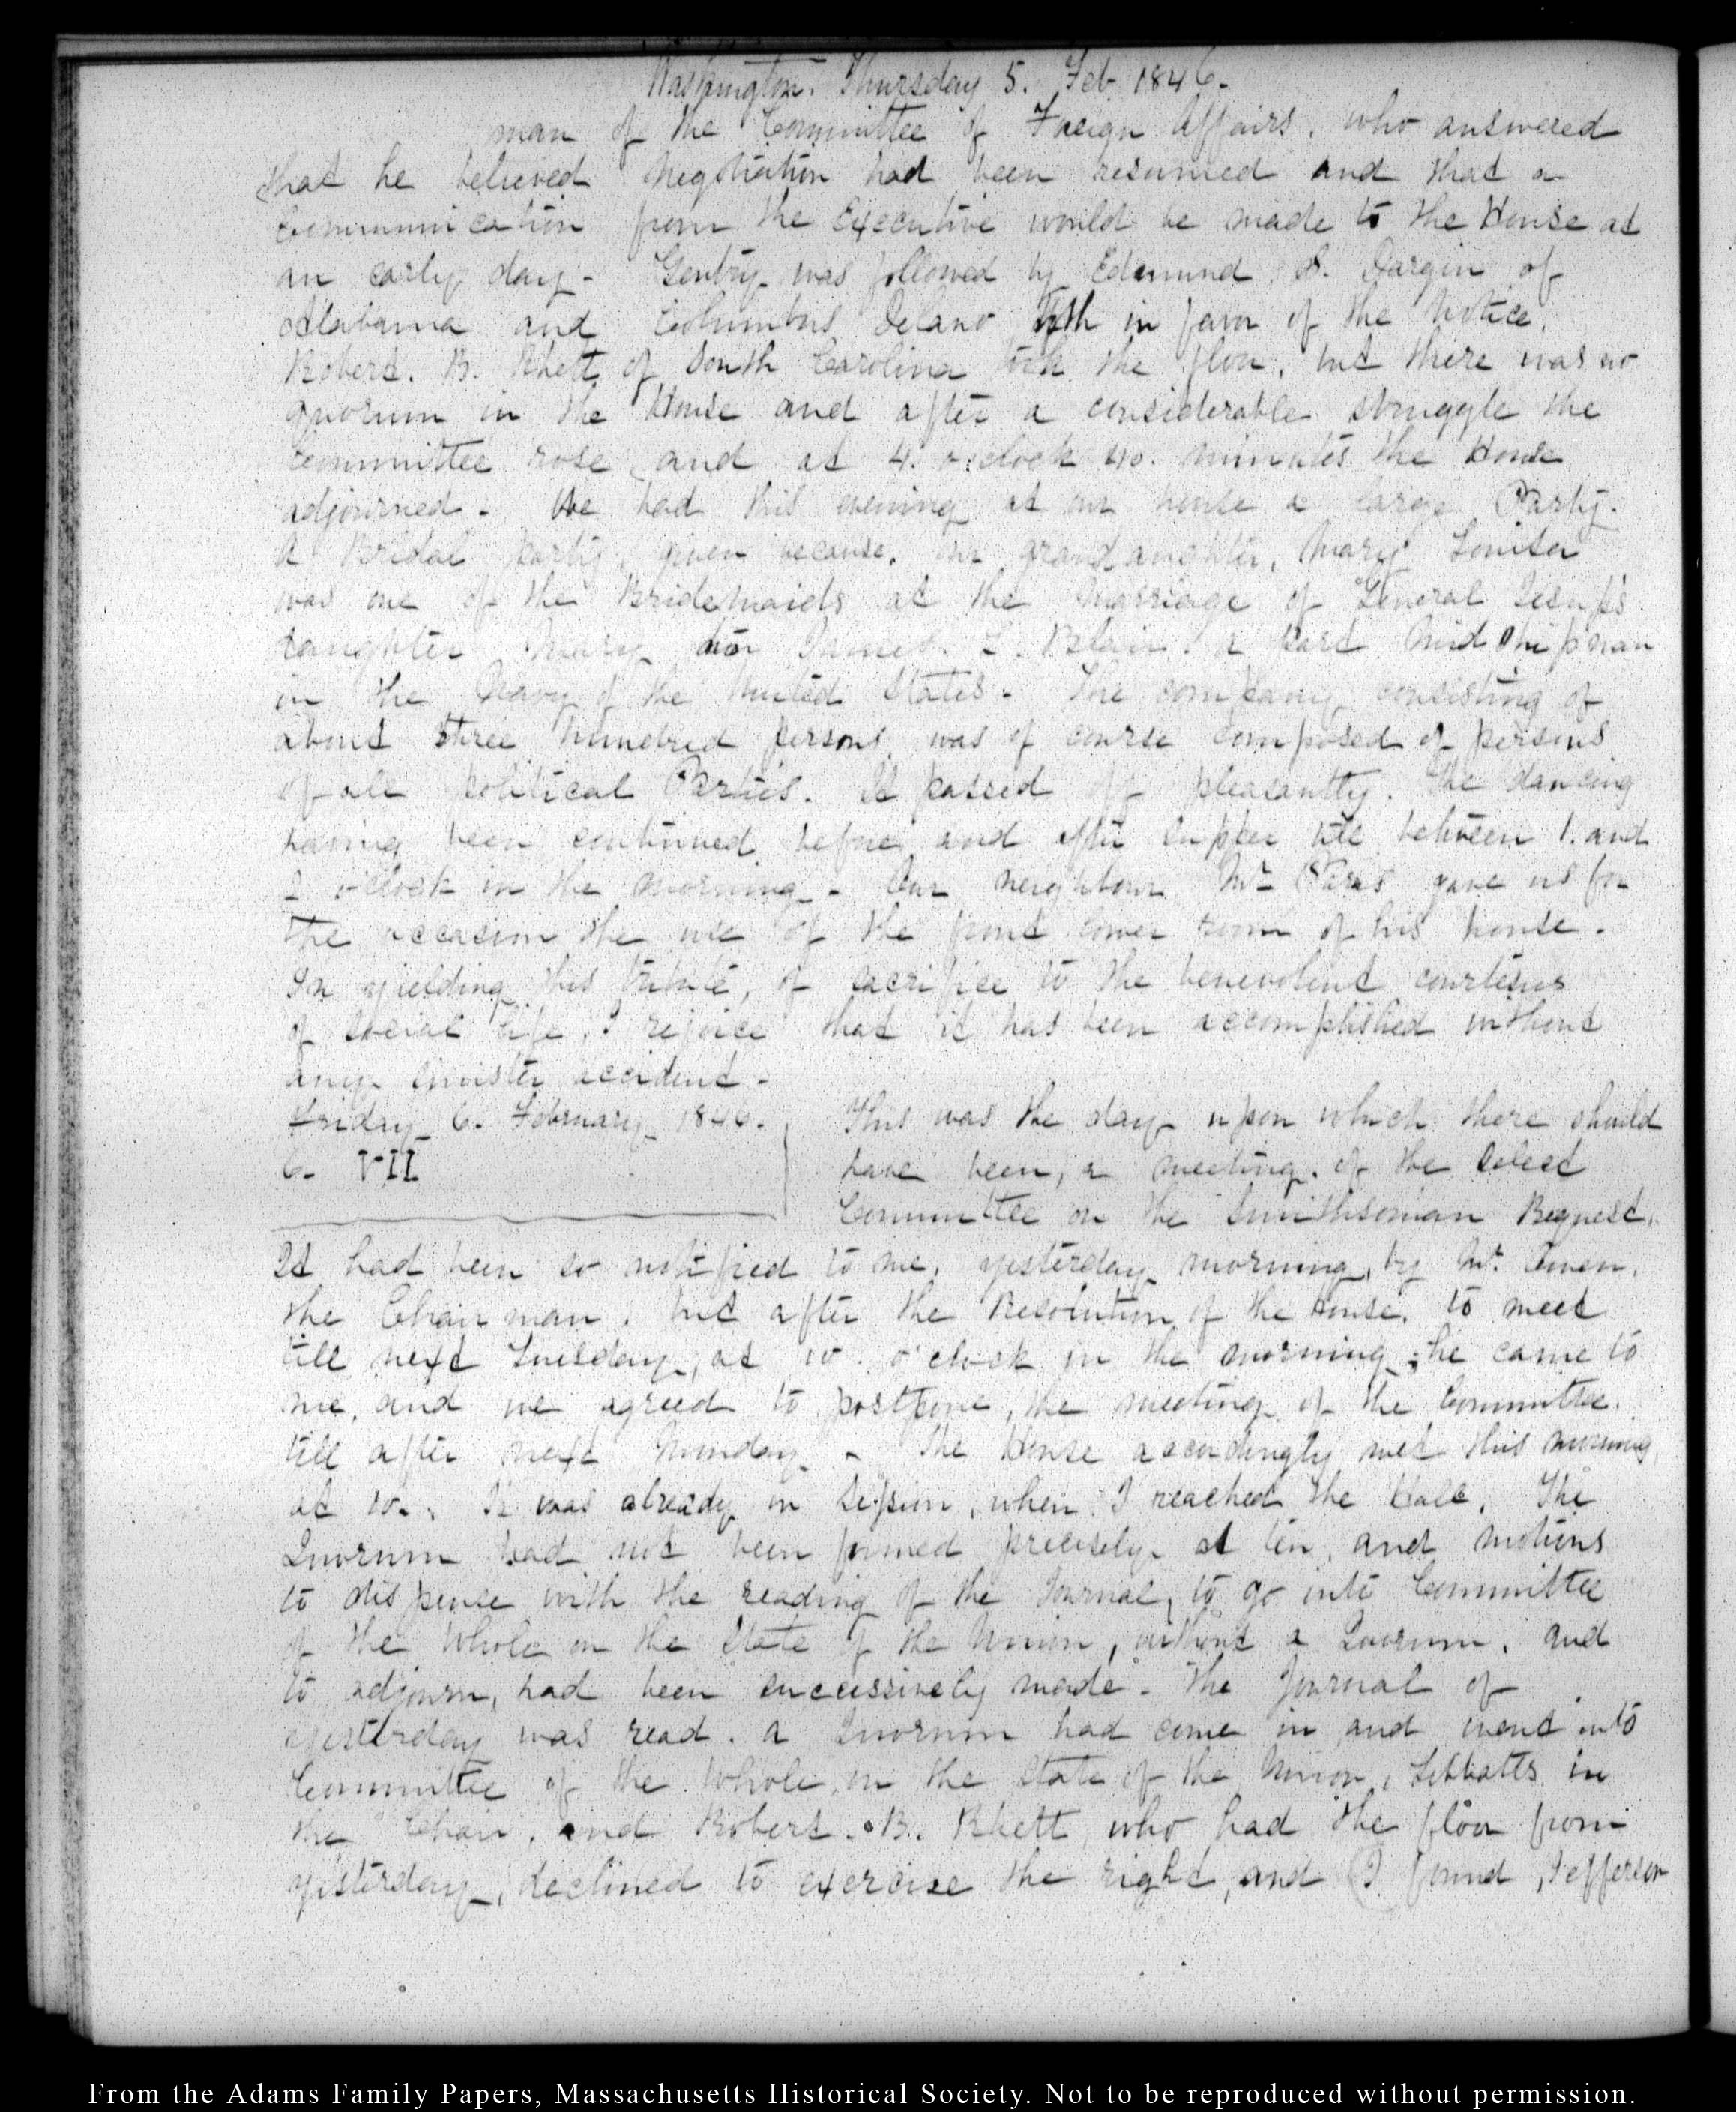 Washington. Thursday 5. Feb 1846.
man of the Committee of Foreign Affairs, who answered
that he believed Negotiation had been resumed and that a
Communication from the Executive would be made to the House at
an early day - Gentry was followed by Edmund S. Dargin of
Alabama and Columbus Delano both in favor of the Notice.
Robert. B. Rhett of South Carolina took the floor, but there was no
quorum in the House and after a considerable struggle the
Committee rose and at 4. o'clock 40. minutes the House
adjourned - We had this evening at our house a large Party.
A Bridal party, given because, our grandaughter, Mary Louisa
was one of the Bridemaids at the Marriage of General Jesup's
daughter Mary to James. L. Blair. a Past Midshipman
in the Navy of the United States - The company consisting of
about three hundred persons, was of course composed of persons
of all political Parties. It passed off pleasantly. the dancing
having been continued before and after supper till between 1. and
2 o'clock in the morning - Our neighbour Mr gave us for
the occasion the use of the front lower room of his house.
In yielding this tribute, of sacrifice to the benevolent courtesies
of social life, I rejoice that it has been accomplished without
any sinister accident -
Friday 6. February 1846.
6. VII
This was the day upon which there should
have been, a meeting of the Select
Committee on the Smithsonian Bequest.
It had been so notified to me, yesterday morning, by Mr Owen,
the Chairman. but after the Resolution of the House, to meet
till next Tuesday, at 10. o'clock in the morning; he came to
me, and we agreed to postpone, the meeting of the Committee.
till after next Monday - The House accordingly met this morning,
at 10. It was already in Session, when I reached the Hall. The
Quorum had not been formed precisely at ten, and motions
to dispense with the reading of the Journal, to go into Committee
of the Whole on the State of the Union, without a Quorum, and
to adjourn, had been successively made - The Journal of
yesterday was read. A Quorum had come in and went into
Committee of the Whole, on the State of the Union, Tibbatts in
the Chair, and Robert. B. Rhett, who had the floor from
yesterday, declined to exercise the right, and I found, Jefferson
From the Adams Family Papers, Massachusetts Historical Society. Not to be reproduced without permission.